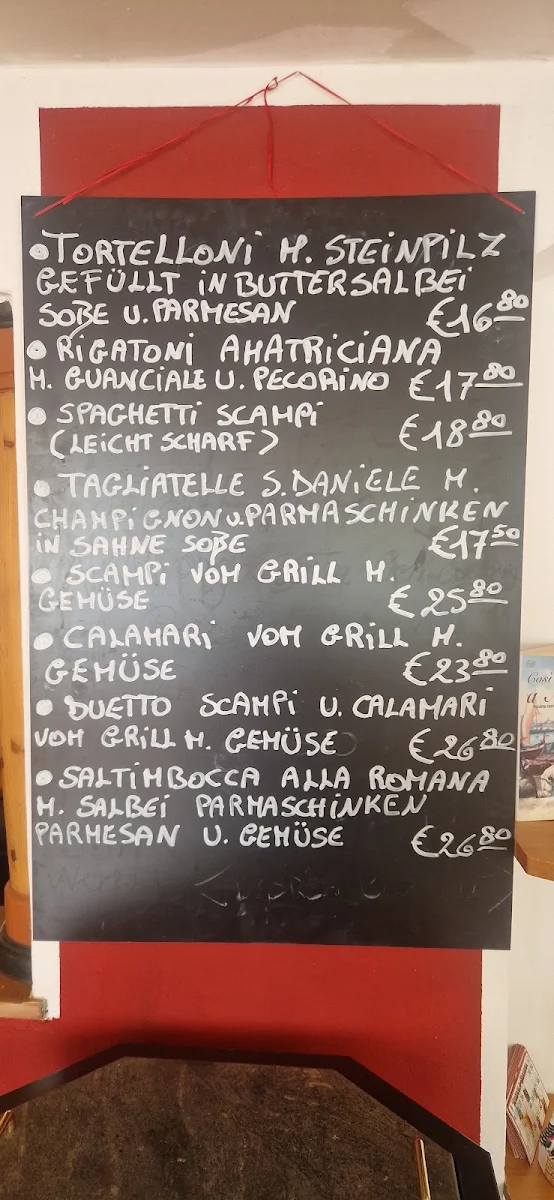 • TORTELLONI M. STEINPILZ
GEFÜLLT IN BUTTERSALBEI
SOßE U. PARMESAN €16 80
• RIGATONI AMATRICIANA
M. GUANCIALE U. PECORINO €17 80
• SPAGHETTI SCAMPI
(LEICHT SCHARF) €18 80
• TAGLIATELLE S. DANIELE M.
CHAMPIGNON U. PARMASCHINKEN
IN SAHNE SOßE €17 50
• SCAMPI VOM GRILL M.
GEMÜSE €25 80
• CALAMARI VOM GRILL M.
GEMÜSE €23 80
• DUETTO SCAMPI U. CALAMARI
VOM GRILL M. GEMÜSE €26 80
• SALTIMBOCCA ALLA ROMANA
M. SALBEI PARMASCHINKEN
PARMESAN U. GEMÜSE €26 80
Così